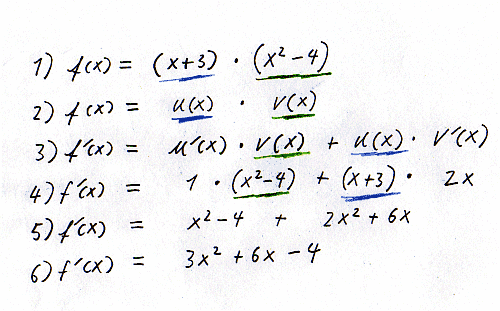 1) f(x) = (x+3) · (x² – 4)
2) f(x) = u(x) · v(x)
3) f'(x) = u'(x) · v(x) + u(x) · v'(x)
4) f'(x) = 1 · (x²–4) + (x+3) · 2x
5) f'(x) = x² – 4 + 2x² + 6x
6) f'(x) = 3x² + 6x – 4